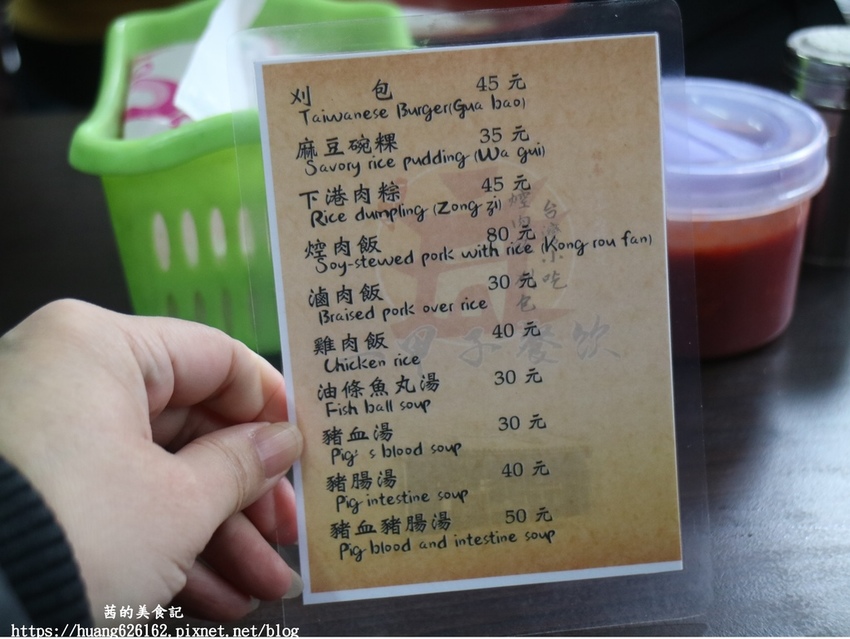 刈 包 45 元
Taiwanese Burger(Gua bao)
麻豆碗粿 35 元
Savory rice pudding (Wa gui)
下港肉粽 45 元
Rice dumpling (Zong zi)
焢肉飯 80 元
Soy-stewed pork with rice (Kong rou fan)
滷肉飯 30 元
Braised pork over rice
雞肉飯 40 元
Chicken rice
油條魚丸湯 30 元
Fish ball soup
豬血湯 30 元
Pig' s blood soup
豬腸湯 40 元
Pig intestine soup
豬血豬腸湯 50 元
Pig blood and intestine soup
台灣小吃
焢肉
包
子餐飲
茜的美食記
https://huang626162.pixnet.net/blog